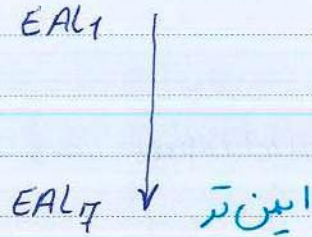 EAL1
EAL7 ایمن تر